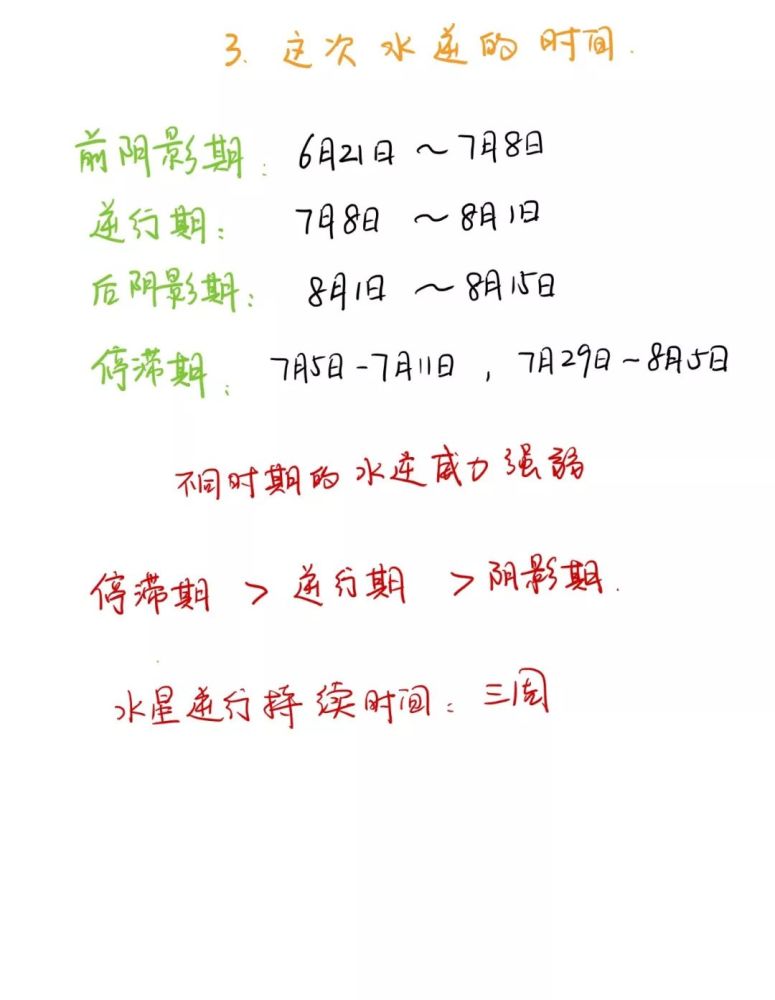 3. 这次水逆的时间.
前阴影期: 6月21日~7月8日
逆行期: 7月8日~8月1日
后阴影期: 8月1日~8月15日
停滞期: 7月5日-7月11日, 7月29日~8月5日
不同时期的水逆威力强弱
停滞期 > 逆行期 > 阴影期.
水星逆行持续时间: 三周